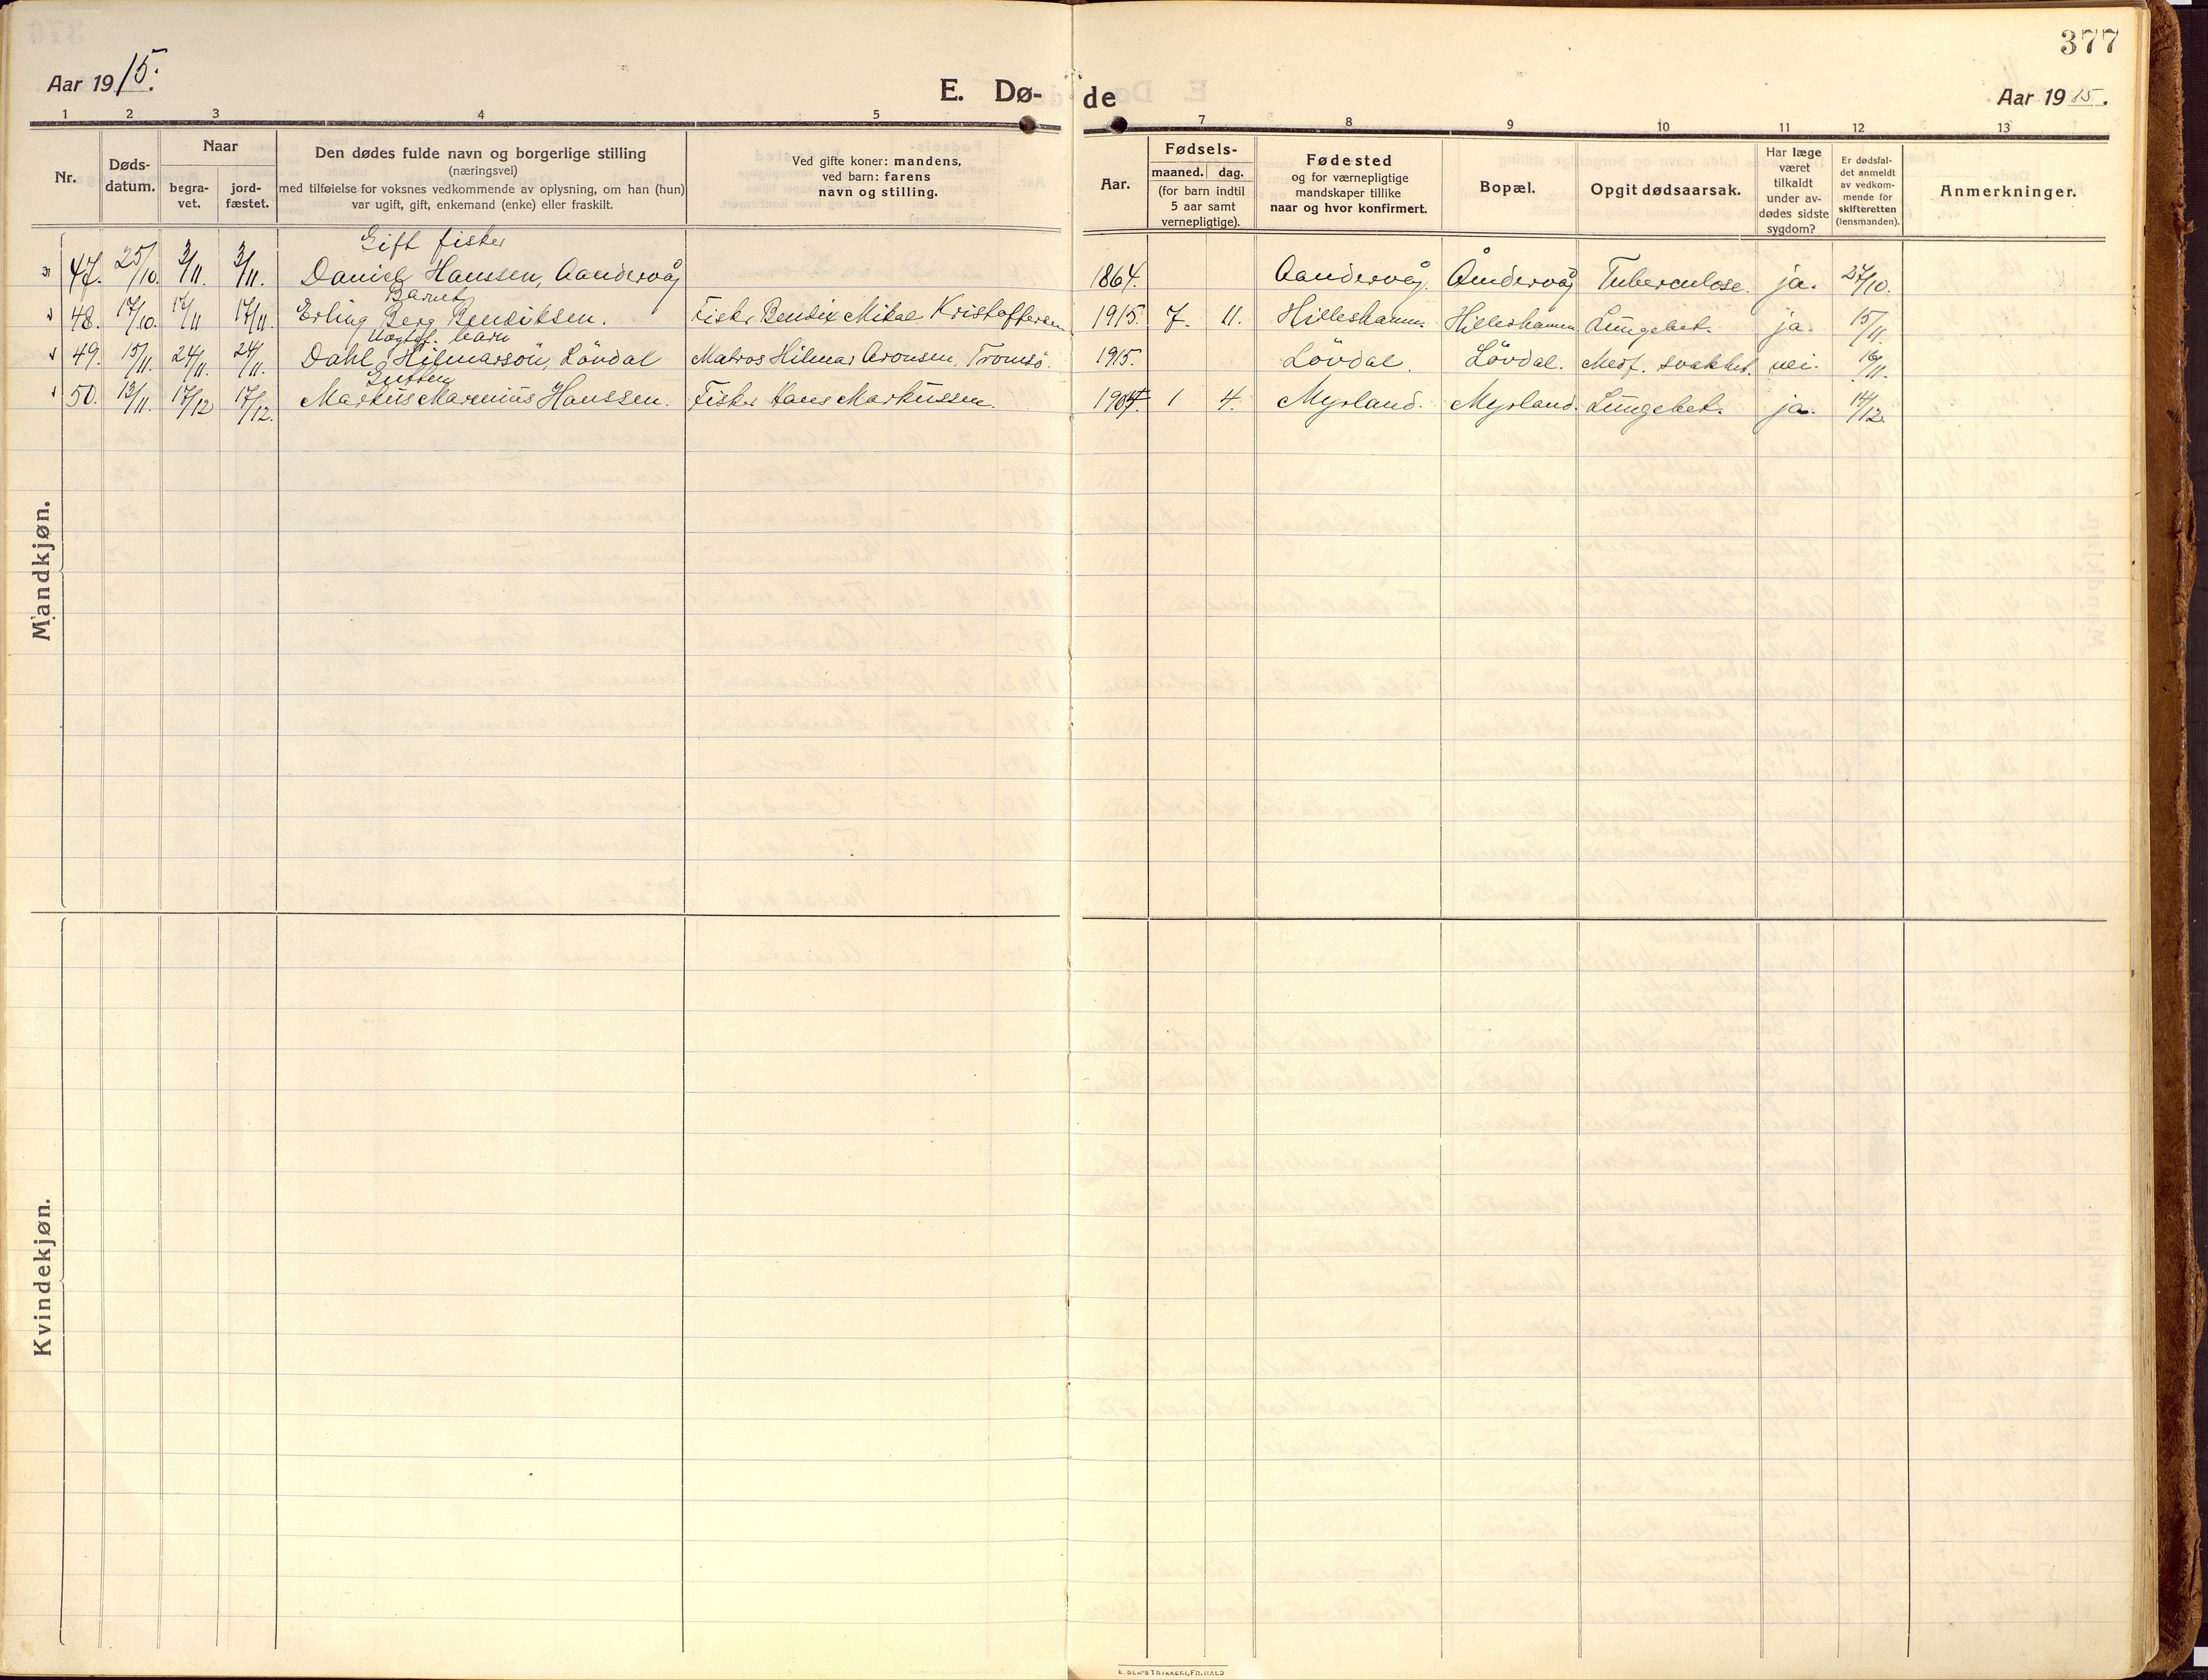 377
Aar 1915.
E. Dø-de
Aar 1915.
1 2 3 4 5 7 8 9 10 11 12 13
Nr.
Døds-
datum.
Naar
begra-
vet.
jord-
fæstet.
Den dødes fulde navn og borgerlige stilling
(næringsvei)
med tilføielse for voksnes vedkommende av oplysning, om han (hun)
var ugift, gift, enkemand (enke) eller fraskilt.
Ved gifte koner: mandens,
ved barn: farens
navn og stilling.
Aar.
Fødsels-
maaned. dag.
(for barn indtil
5 aar samt
vernepligtige).
Fødested
og for værnepligtige
mandskaper tillike
naar og hvor konfirmert.
Bopæl.
Opgit dødsaarsak.
Har læge
været
tilkaldt
under av-
dødes sidste
sygdom?
Er dødsfal-
det anmeldt
av vedkom-
mende for
skifteretten
(lensmanden).
Anmerkninger.
Gift fisker
47. 25/10. 3/11. 3/11. Daniel Hanssen, Aandervåg 1864. Aandervåg. Åndervåg Tuberculose. ja. 27/10.
Barnet
48. 17/10. 17/11 17/11. Erling Berg Bendiksen. Fisker Bendix Mikal Kristoffersen 1915. 7. 11. Hilleshamn. Hilleshamn Lungebet. ja. 15/11.
Uægtef. barn
49. 15/11. 24/11. 24/11. Dahl Hilmarson, Lövdal Matros Hilmar Aronsen, Tromsö. 1915. Lövdal. Lövdal. Medf. svakhet. nei. 16/11.
Gutten
50. 13/11. 17/12 17/12. Markus Marenius Hanssen. Fisker Hans Markussen. 1904. 1 4. Myrland. Myrland. Lungebet. ja. 14/12.
Mandkjøn.
Kvindekjøn.